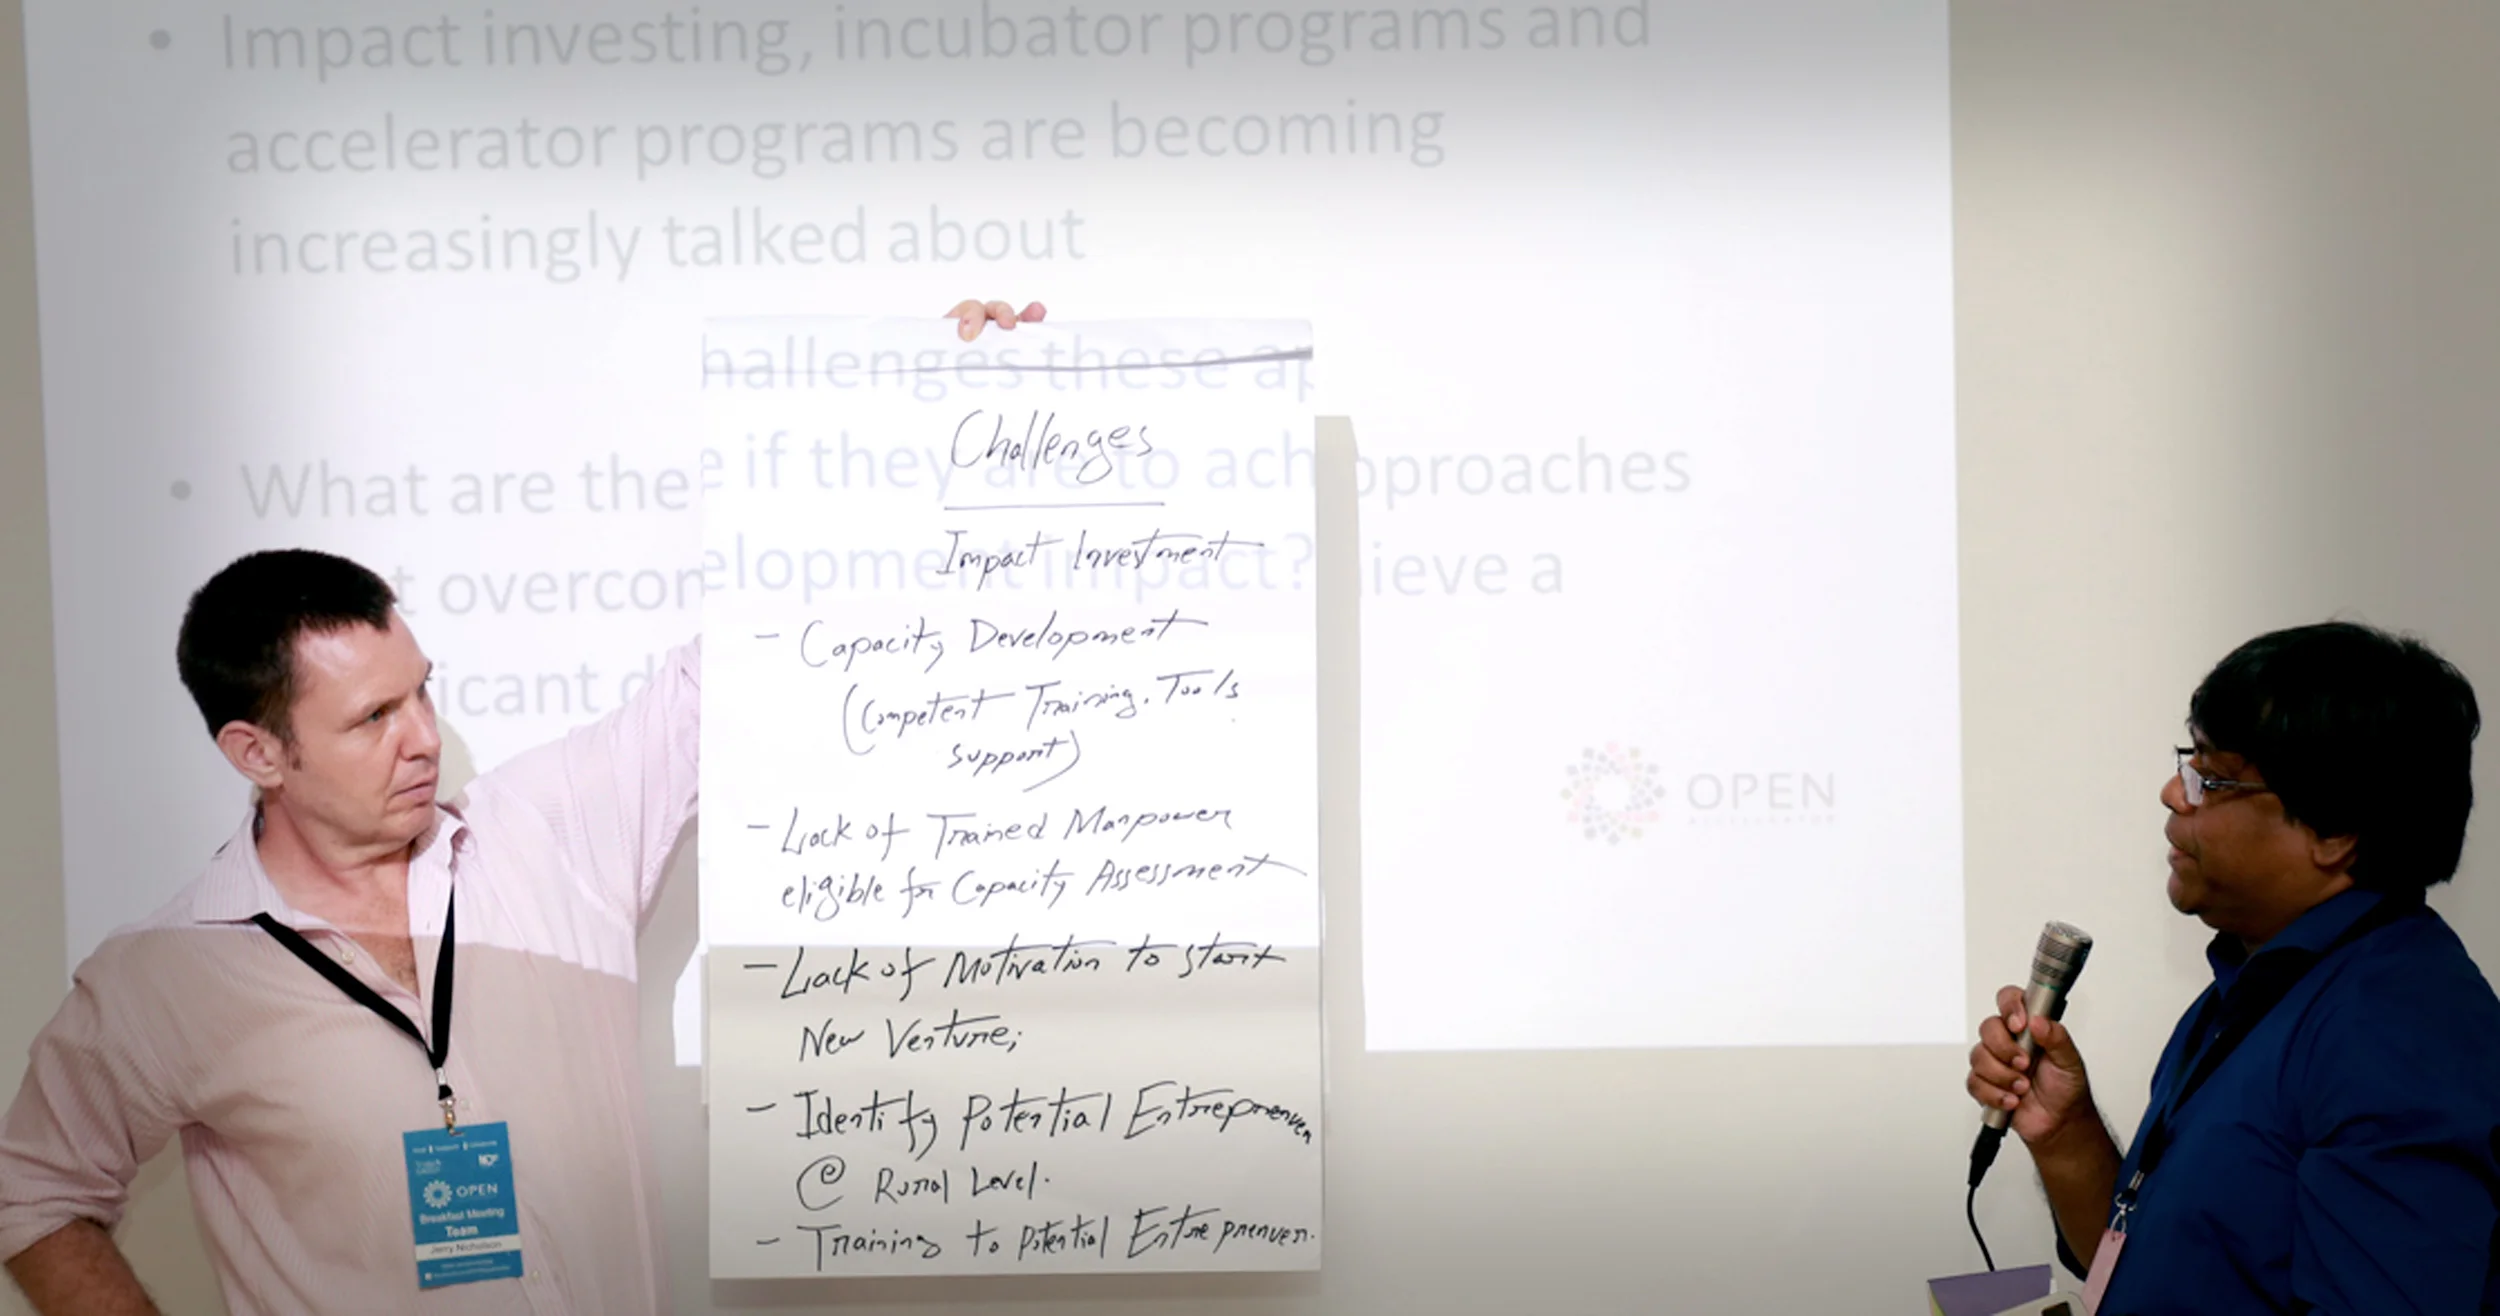 Impact investing, incubator programs and
accelerator programs are becoming
increasingly talked about
hallenges these ap
What are the
e if they are to ach
pproaches
t overcom
elopment impact?
ieve a
icant d
Challenges
Impact Investment
- Capacity Development
(Competent Training, Tools
support)
- Lack of Trained Manpower
eligible for Capacity Assessment
- Lack of Motivation to start
New Venture;
- Identify Potential Entreprenuer
@ Rural Level.
- Training to Potential Entreprenuer.
OPEN
ACCELERATOR
OPEN
Breakfast Meeting
Team
Jerry Nicholson